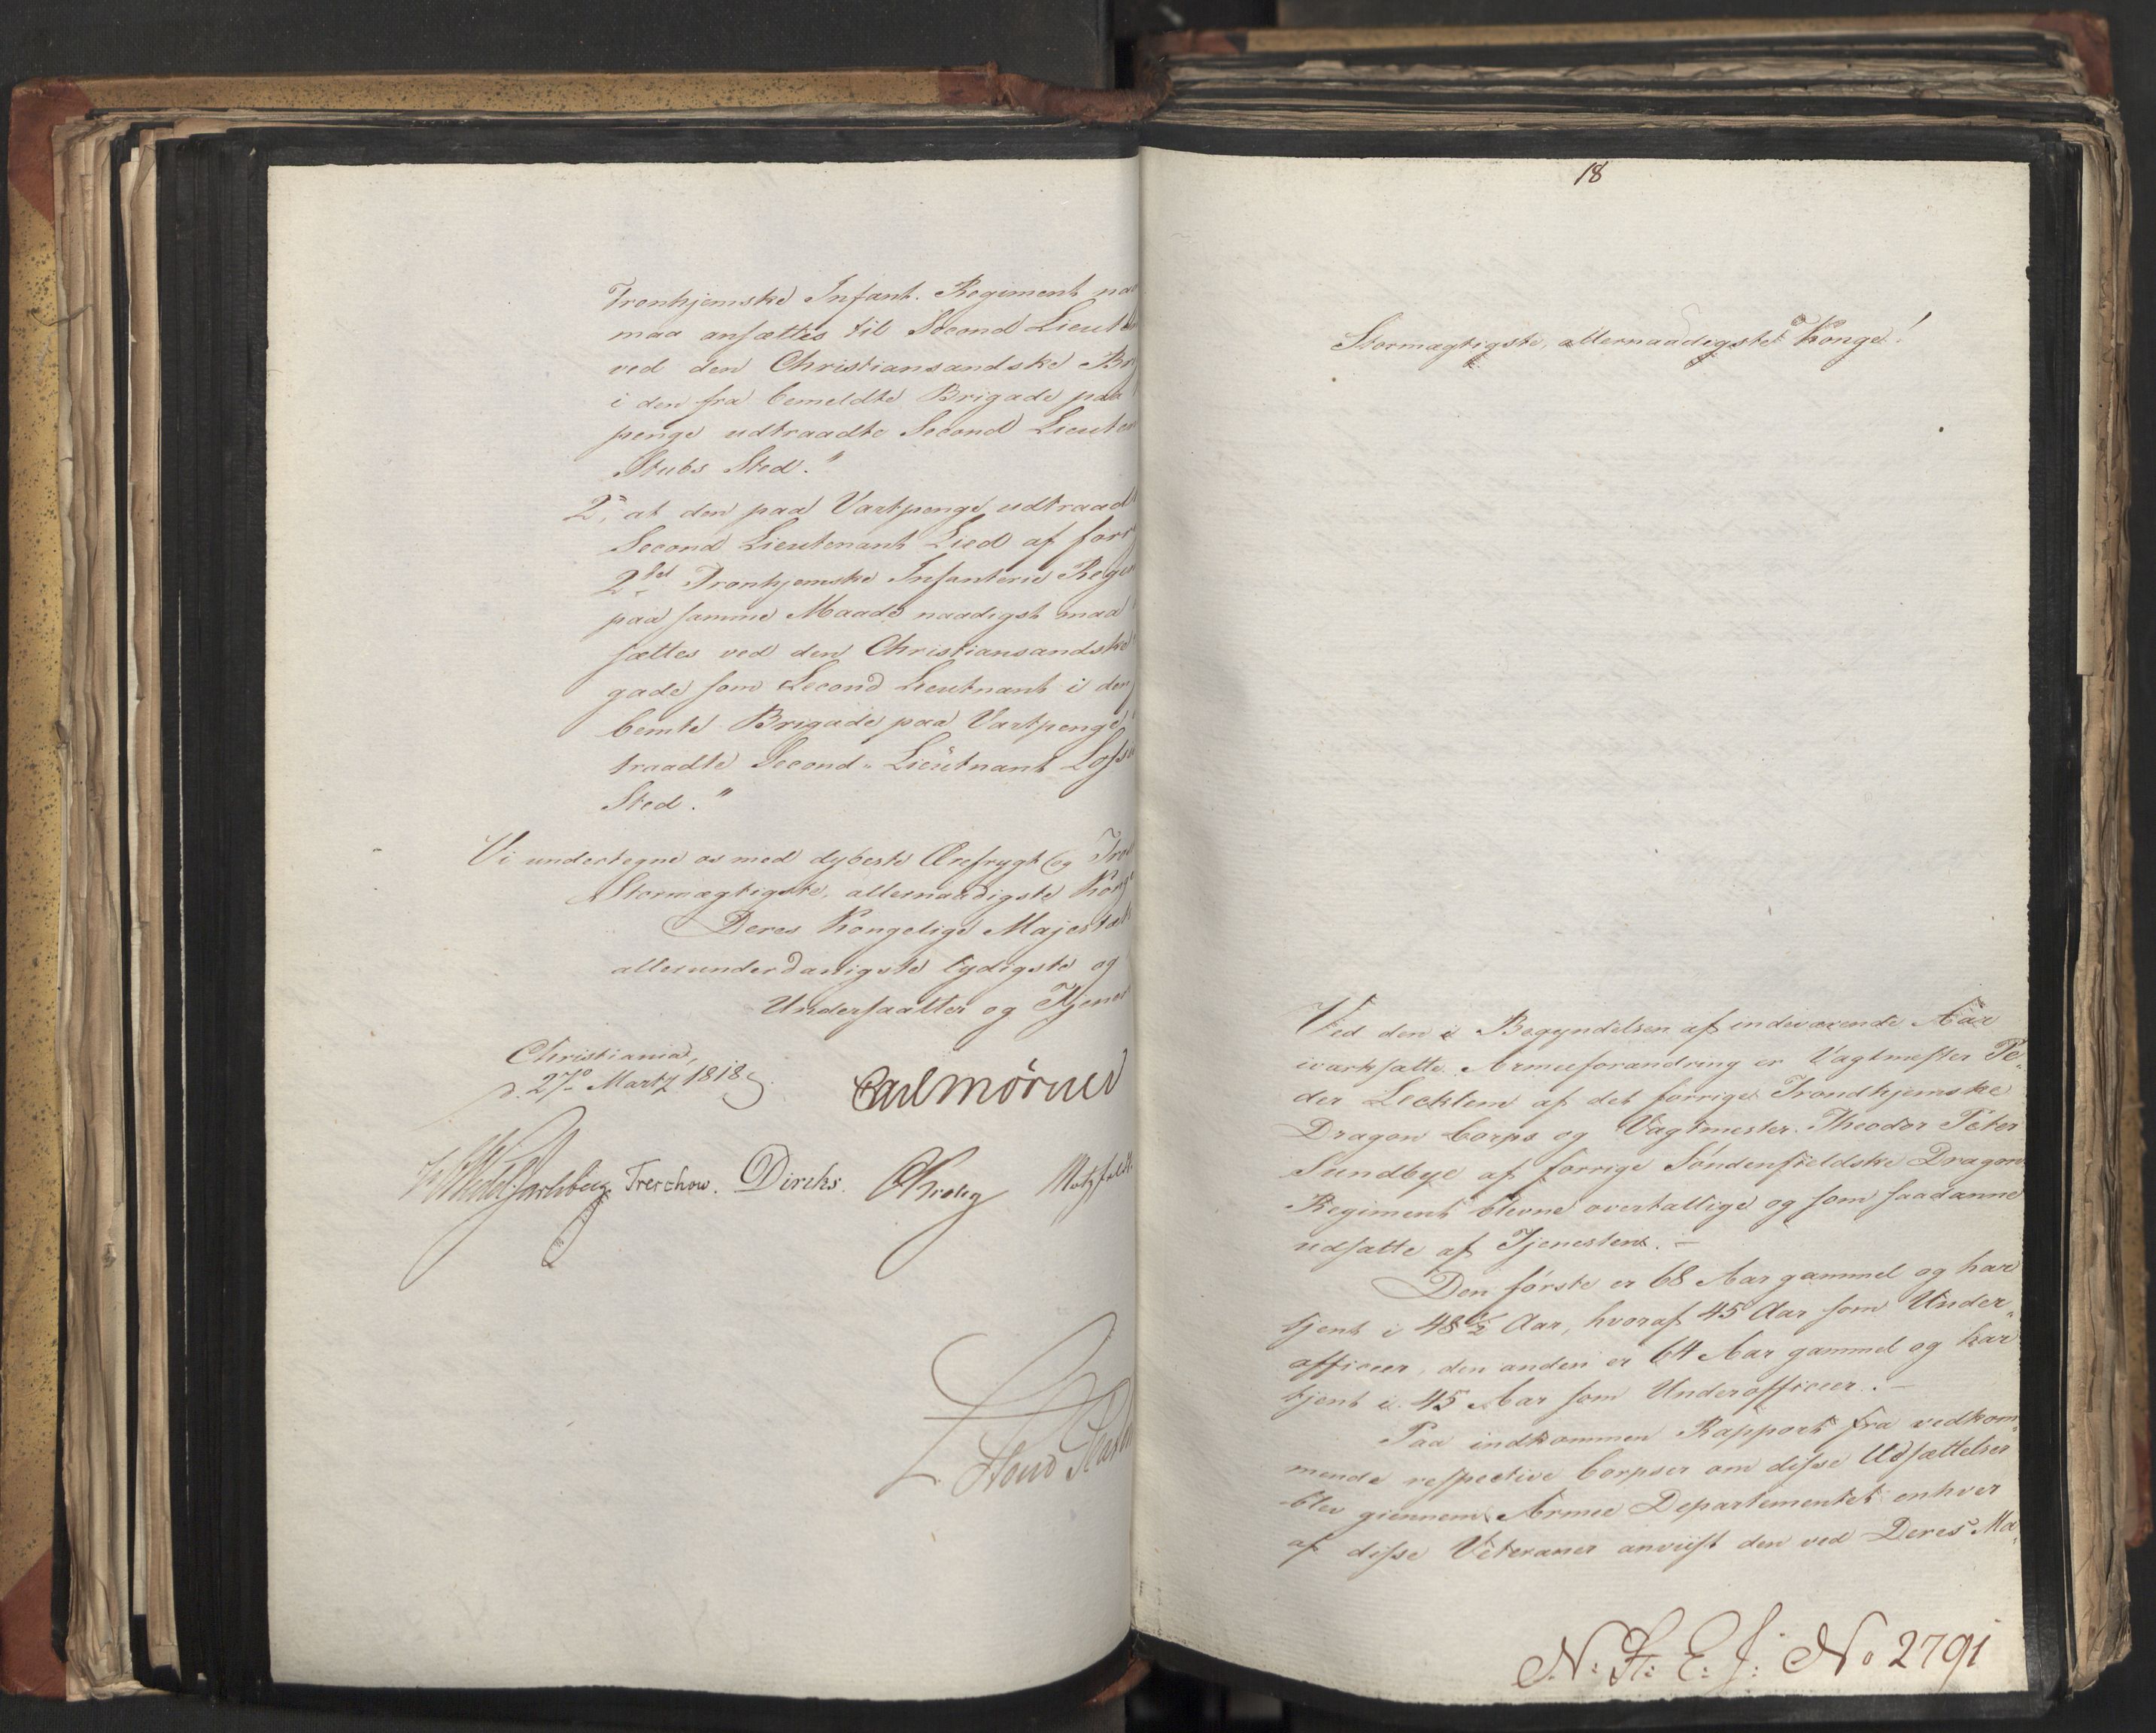 Tronhjemske Infant. Regiment
maa ansættes til Second
ved den Christiansandske
i den fra bemeldte Brigade paa
penge udtraadte Second
Stubs Sted."
2, at den paa Vartpenge
Second Lieutenant Lied af
2det Tronhjemske Infanterie
paa samme Maade naadigst maa
sættes ved den Christiansandske
gade som Second Lieutnant i den
bemte Brigade paa Vartpenge
traadte Second-Lieutnant
Sted."
Vi undertegne os med dybeste Ærefrygt og
Stormægtigste, allernaadigste
Deres Kongelige Majestæts
allerunderdanigste lydigste og
Undersaatter og
Christiania,
d. 27 Martz 1818
Carl Mörner
Wedel Jarlsberg Treschow. Diriks. CKrohg Motzfeldt.
18
Stormægtigste, allernaadigste Konge!
Ved den i Begyndelsen af indeværende Aar
iværksatte Armeeforandring er Vagtmester Pe„
der Lecklem af det forrige Trondhjemske
Dragon Corps og Vagtmester Theodor Peter
Sundbye af forrige Söndenfieldske Dragon
Regiment blevne overtallige og som saadanne
udsatte af Tjenesten. –
Den förste er 68 Aar gammel og har
tjent i 48½ Aar, hvoraf 45 Aar som Under„
officeer, den anden er 64 Aar gammel og har
tjent i 45 Aar som Underofficeer. –
Paa indkommen Rapport fra vedkom„
mende respective Corpser om disse Udsættelser
blev giennem Armee Departementet enhver
af disse Veteraner anviist den ved Deres Ma„
N: St: E: J: No 2791